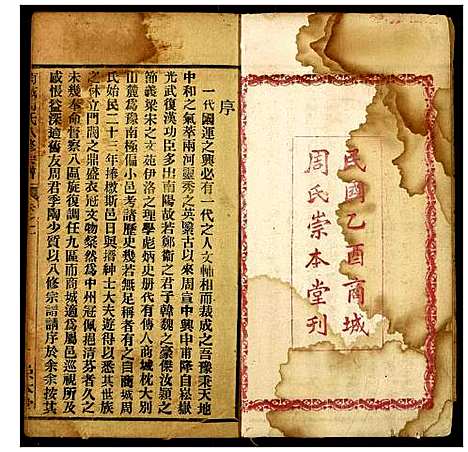 民國乙酉商城
周氏崇本堂刊
序
一代國運之興必有一代之人文軸相而裁成之吾豫秉天地
中和之氣萃兩河靈秀之英繁古以來周宣中興申甫降自崧嶽
光武復漢功臣多出南陽故若鄭衛之君子韓魏之豪傑汝潁之
節義梁宋之文苑伊洛之理學彪炳史册代有傳人商城枕大別
山麓爲豫南極偏小邑考諸歷史幾若無足稱者有之自商城周
氏始民二十三年捧檄斯邑日與搢紳士大夫遊得以悉其世族
之林立門閥之鼎盛衣冠文物粲然爲中州冠佩挹清芬者久之
未幾奉命督察八區旋復調任九區而商城適爲屬邑巡視所及
感悵益深適舊友周君季陶少質以八修宗譜請序於余余按其